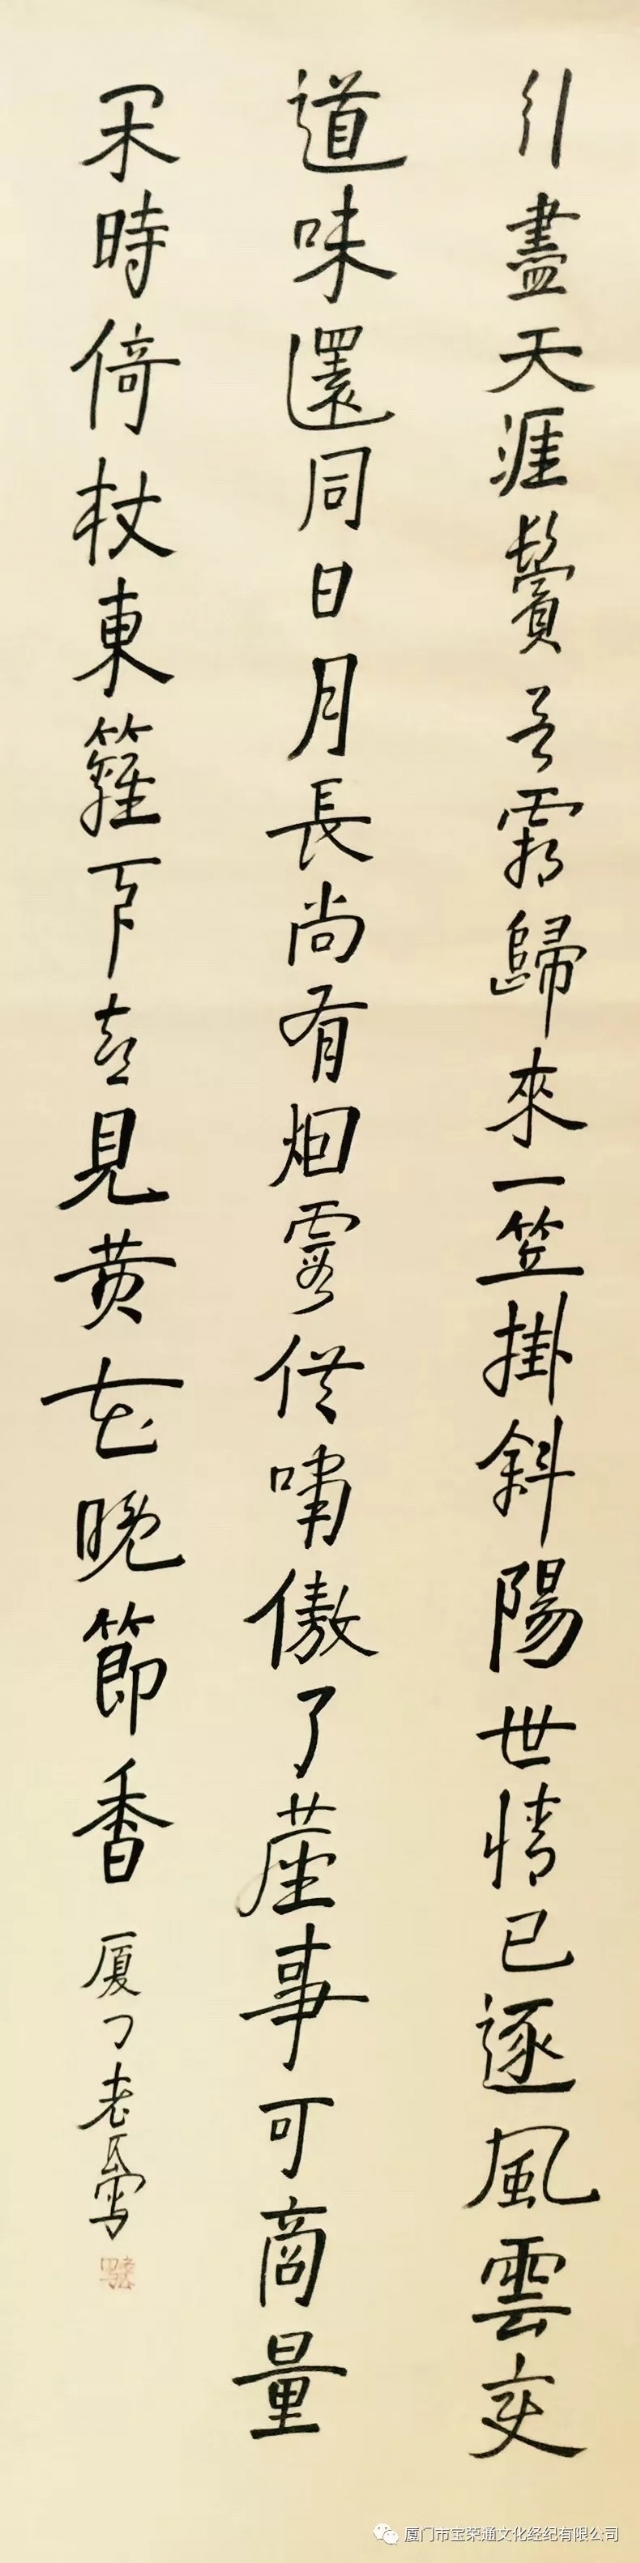 引盡天涯鬢霜歸來一笠掛斜陽世情已逐風雲变
道味還同日月長尚有烟霞供嘯傲了塵事可商量
闲時倚杖東籬下喜見黄花晚節香 厦门老
厦门市宝荣通文化经纪有限公司